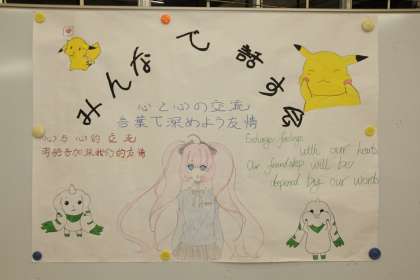 みんなで話す会
心と心の交流
言葉で深めよう友情
心与心的交流
Exchange feelings
with our hearts
Our friendship will be
depend by our words